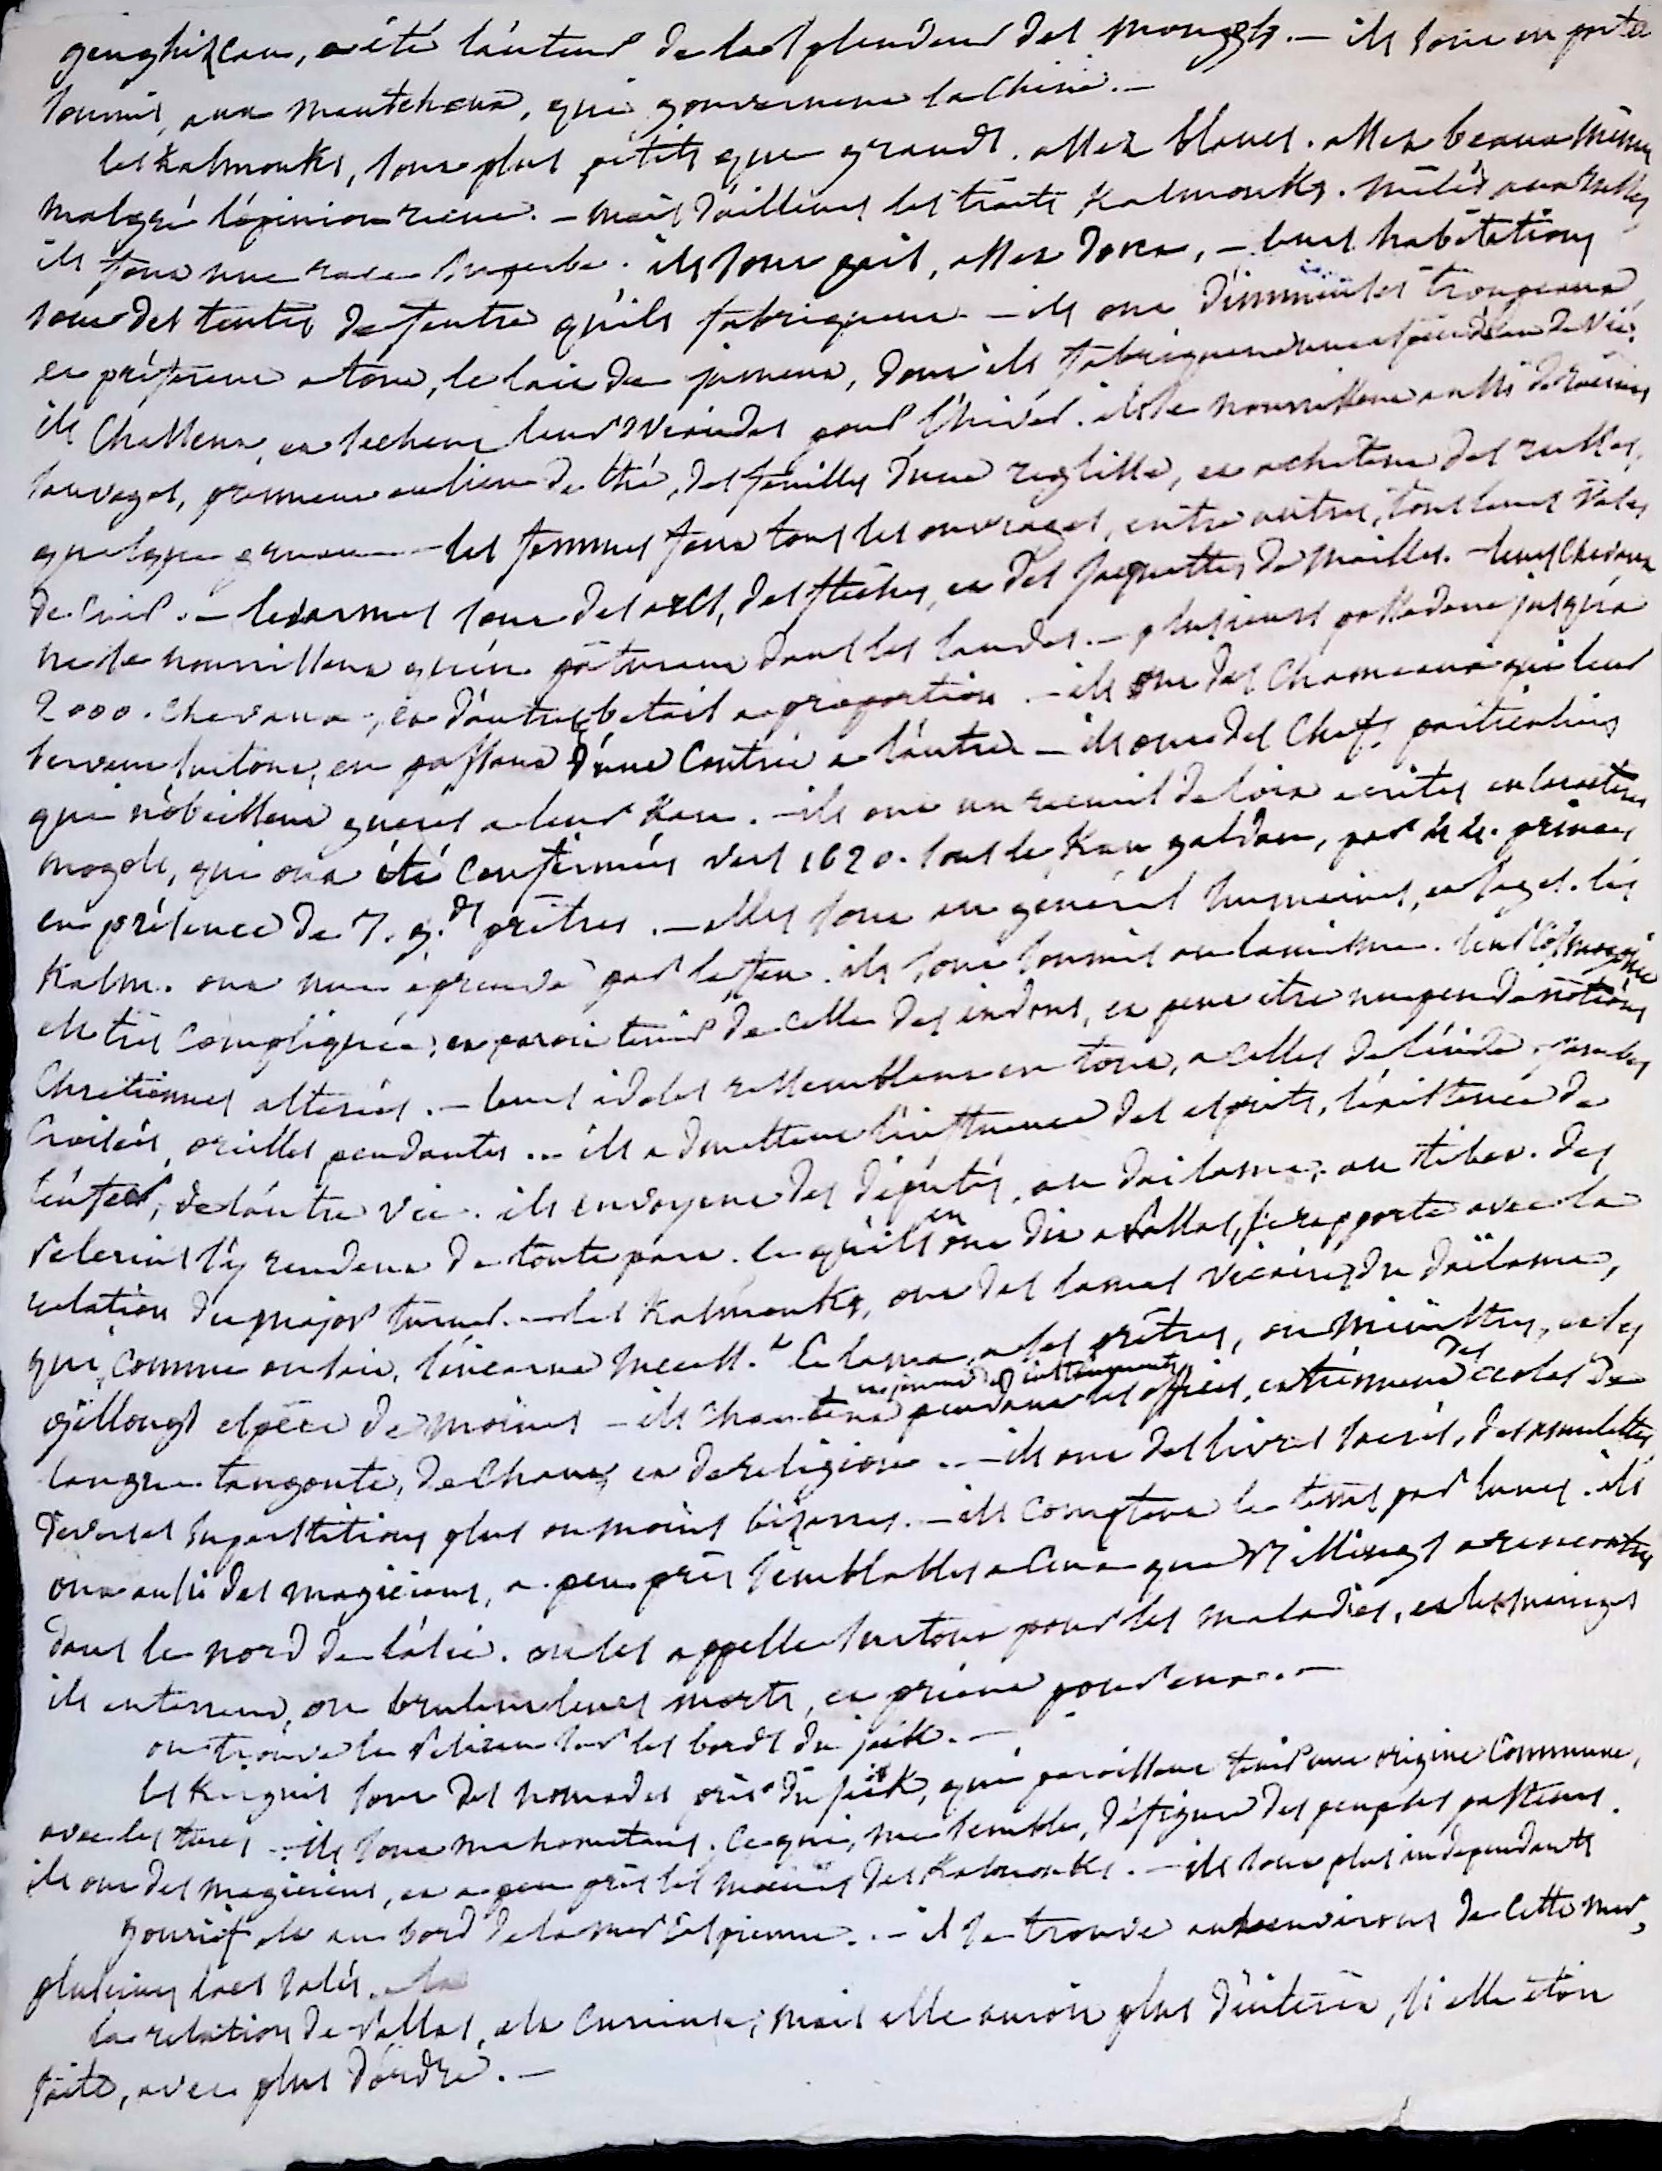 genghizcan, a été l'auteur de la splendeur des mongols. — ils sont en partie
soumis, aux mantcheoux, qui gouvernent la Chine. —
les Kalmouks, sont plus petits que grands. assez blancs. assez beaux même
malgré l'opinion reçue. — mais d'ailleurs les traits Kalmouks. mêlés aux russes
ils font une race superbe. ils sont gais, assez doux, — leurs habitations
sont des tentes de feutre qu'ils fabriquent — ils ont d'immenses troupeaux
et préferent a tout, le lait de jument, dont ils fabriquent une espece d'eau de vie.
ils Chassent, et sechent leurs viandes pour l'hiver. ils se nourrissent aussi de racines
sauvages, prennent au lieu de thé, des feuilles d'une reglisse, et achetent des russes,
quelque gruau — les femmes font tous les ouvrages, entre autres, tous leurs vases
de cuir. — les armes sont des arcs, des flêches, et des jaquettes de mailles. — leurs chevaux
ne se nourrissent qu'en pâturant dans les landes. — plusieurs possedent jusqu'a
2000. chevaux, et d'autre betail a proportion. — ils ont des Chameaux qui leur
servent surtout, en passant d'une Contrée a l'autre — ils ont des Chefs particuliers
qui n'obeissent gueres a leur Kan. — ils ont un recueil de loix ecrites en caracteres
mogols, qui ont été confirmées vers 1620. sous le Kan galdan, par 44. princes
en présence de 7. g.ds prêtres. — elles sont en général humaines, et sages. les
Kalm. ont une epreuve par le feu. ils sont soumis au lamisme. leur Cosmogonie
est très compliquée, et paroit tenir de celle des indous, et peut etre un peu de notions
Chretiennes alterées. — leurs idoles ressemblent en tout, a celles de l'inde, jambes
Croisées, oreilles pendantes ... ils admettent l'influence des esprits, l'existence de
l'enfer, de l'autre vie. ils envoyent des députés, au dailama, au tibet. des
Pelerins s'y rendent de toute part. ce qu'ils en ont dit a Pallas, se rapporte avec la
relation du major turner. — les Kalmouks, ont des lamas vicaires du daïlama,
qui, comme on sait, s'incarne incess.t Ce lama, a ses prêtres, ou ministres, et les
gellongs espèce de moines — ils chantent et jouent d'instruments pendant les offices, et tiennent des ecoles de
langue tangoute, de Chant, et de religion. — ils ont des livres sacrés, des amulettes,
diverses superstitions plus ou moins bizarres. — ils Comptent le tems par lunes. ils
ont aussi des magiciens, a peu près semblables a Ceux que Billings a rencontrés
dans le nord de l'asie. on les appelle surtout pour les maladies, et les mariages
ils enterrent, ou brulent leurs morts, et prient pour eux. —
on trouve le Pelican sur les bords du jaïk. —
les Kirguis sont des nomades près du jaïk, qui paroissent tenir une origine Commune,
avec les turcs — ils sont mahometans. ce qui, me semble, défigure des peuples pasteurs.
ils ont des magiciens, et a peu près les moeurs des Kalmouks. — ils sont plus independants
gourief est au bord de la mer Caspienne. — il se trouve aux environs de Cette mer,
plusieurs lacs salés.
la relation de Pallas, est curieuse, mais elle auroit plus d'interêt, si elle étoit
faite, avec plus d'ordre. —